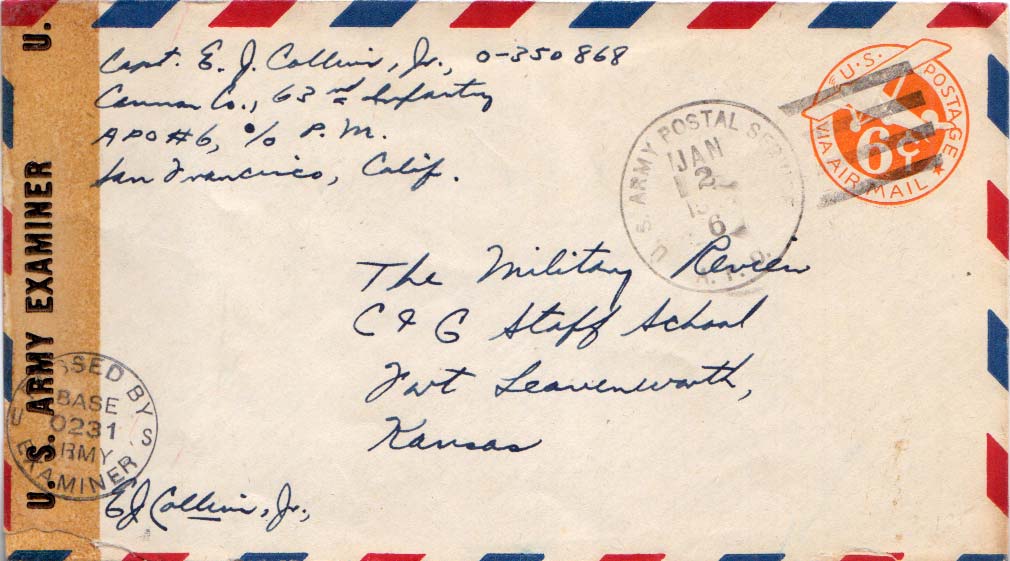 Capt. E. J. Collins, Jr., O-350868
Cannon Co., 63rd Infantry
APO #6, c/o P. M.
San Francisco, Calif.
U.S. POSTAGE
VIA AIR MAIL
6¢
U.S. ARMY POSTAL SERVICE
JAN
2
6
A.P.O.
The Military Review
C & G Staff School
Fort Leavenworth,
Kansas
U. S. ARMY EXAMINER
U.
PASSED BY
BASE
0231
ARMY
EXAMINER
U S
EJ Collins, Jr.,